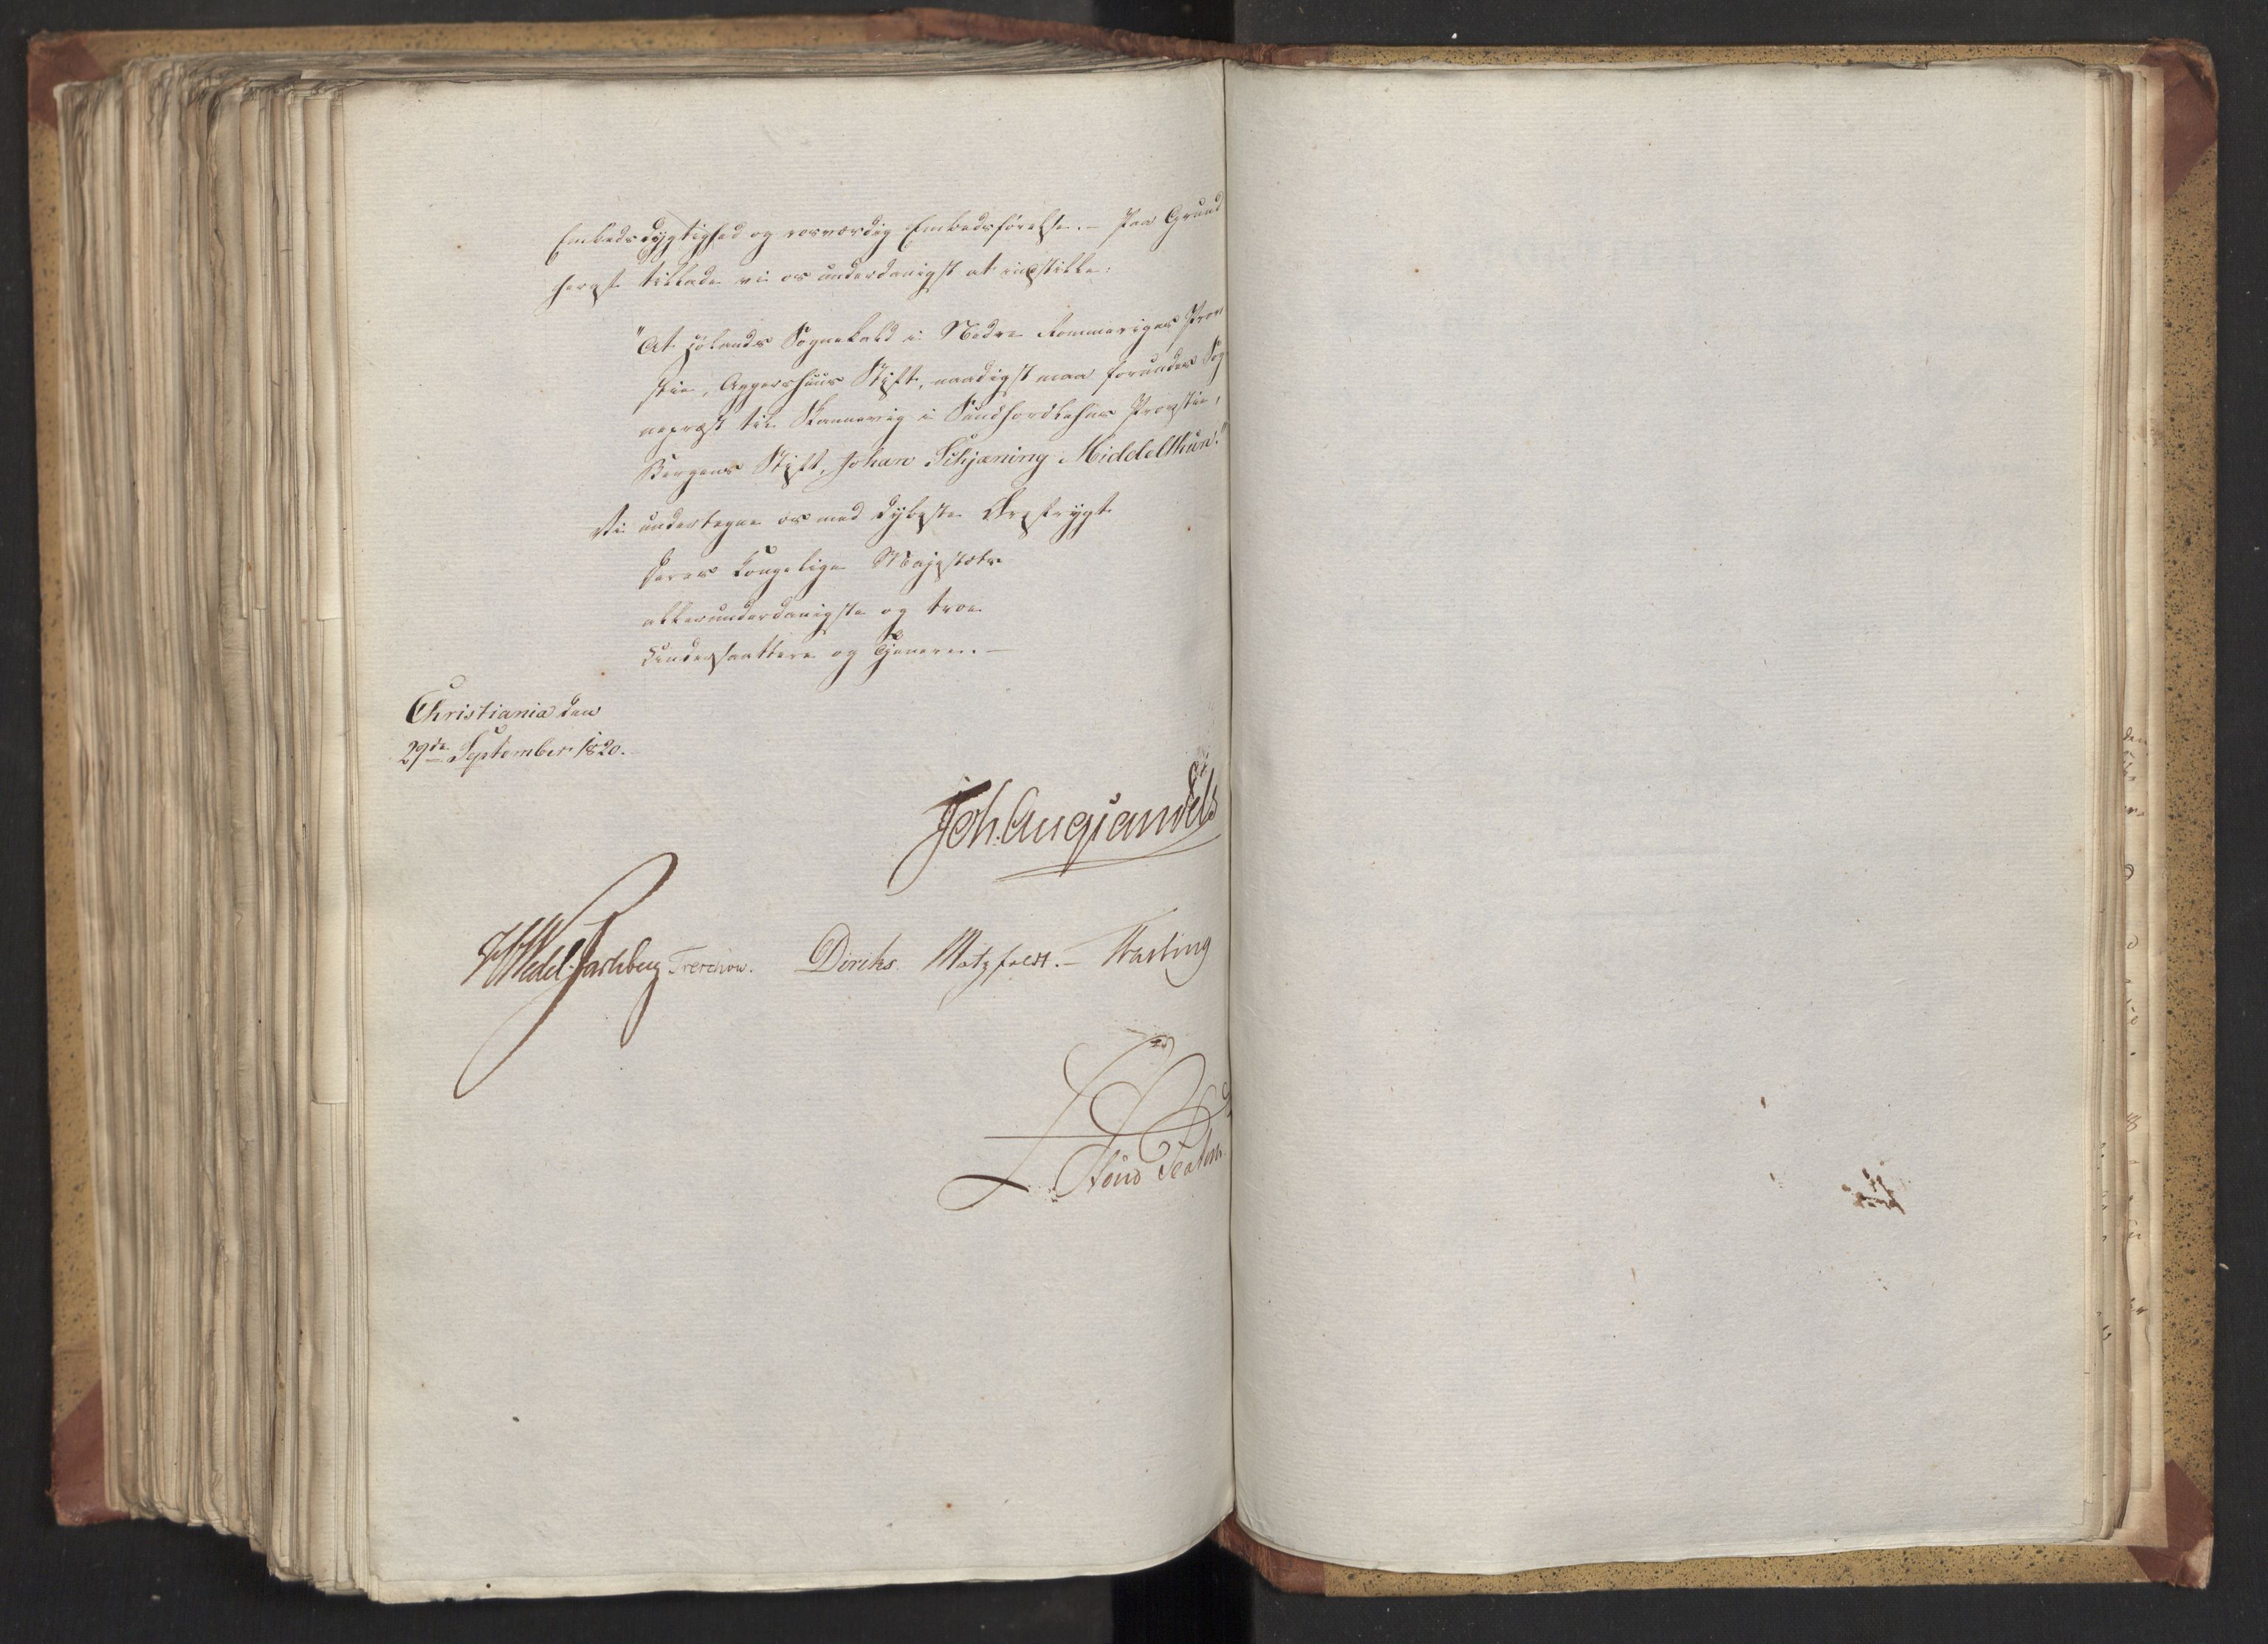 Embedsdygtighed og rosværdig Embedsførelse. – Paa Grund
heraf tillade vi os underdanigst at indstille:
"At Hølands Sognekald i Nedre Rommeriges Prov
stie, Aggershuus Stift, naadigst maa forundes Sog
nepræst til Skaanevig i Sundhordlehns Provstie,
Bergens Stift, Johan Schjæning Middelthun."
Vi undertegne os med dybeste Ærefrygt
Deres Kongelige Majestæts
allerunderdanigste og troe
Undersaatter og Tjenere. –
Christiania den
29de September 1820.
Joh. Aug. Sandels
HWedel Jarlsberg Treschow. Diriks Motzfeldt. – Fasting